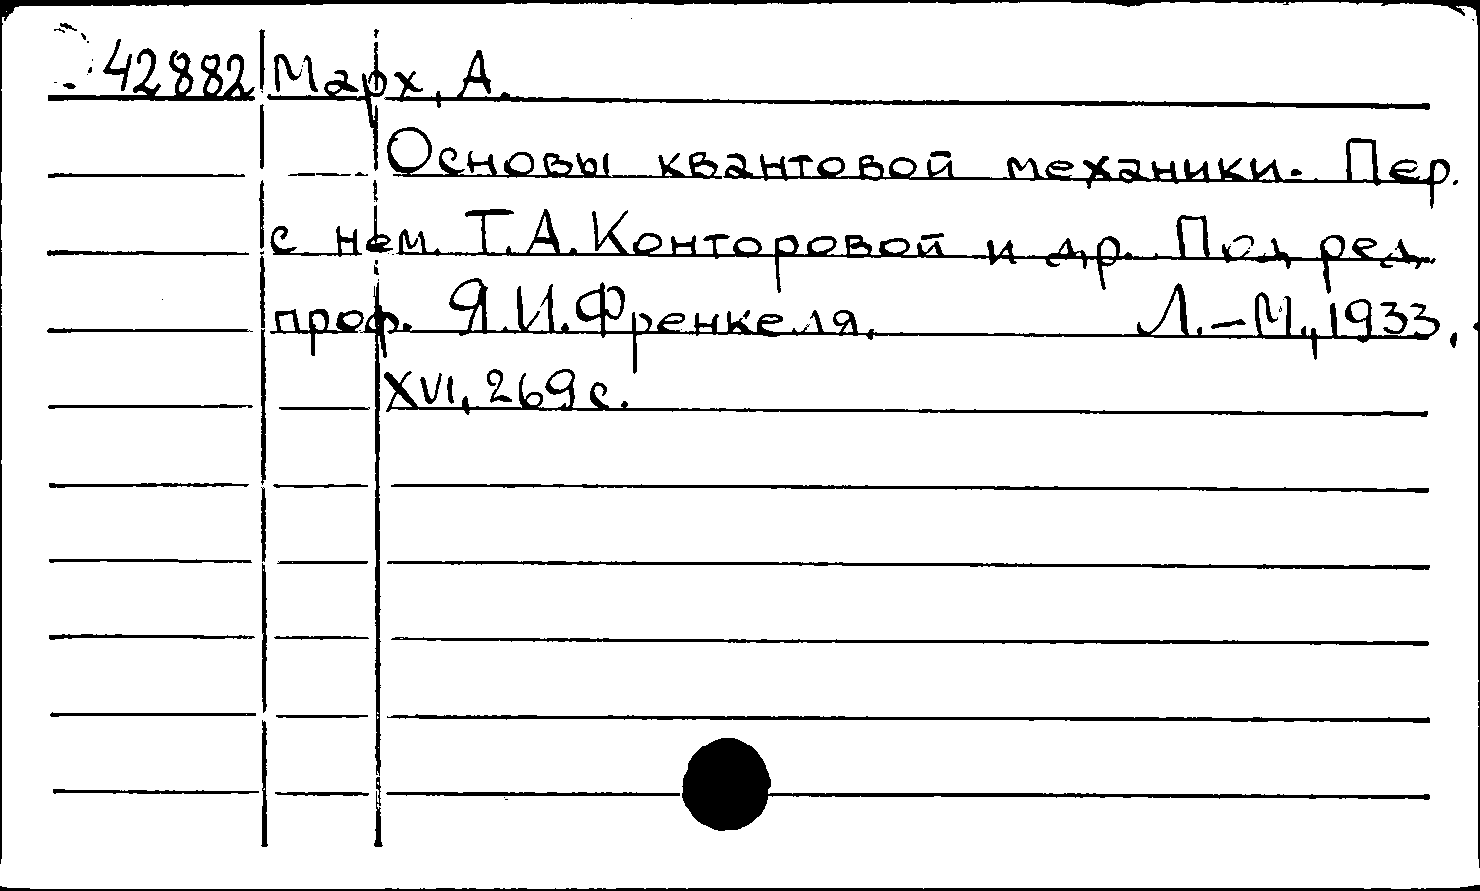 42882 Марх, А.
Основы квантовой механики. Пер.
с нем. Т.А. Конторовой и др. Под ред.
проф. Я.И. Френкеля. Л.-М., 1933.
XVI, 269 с.